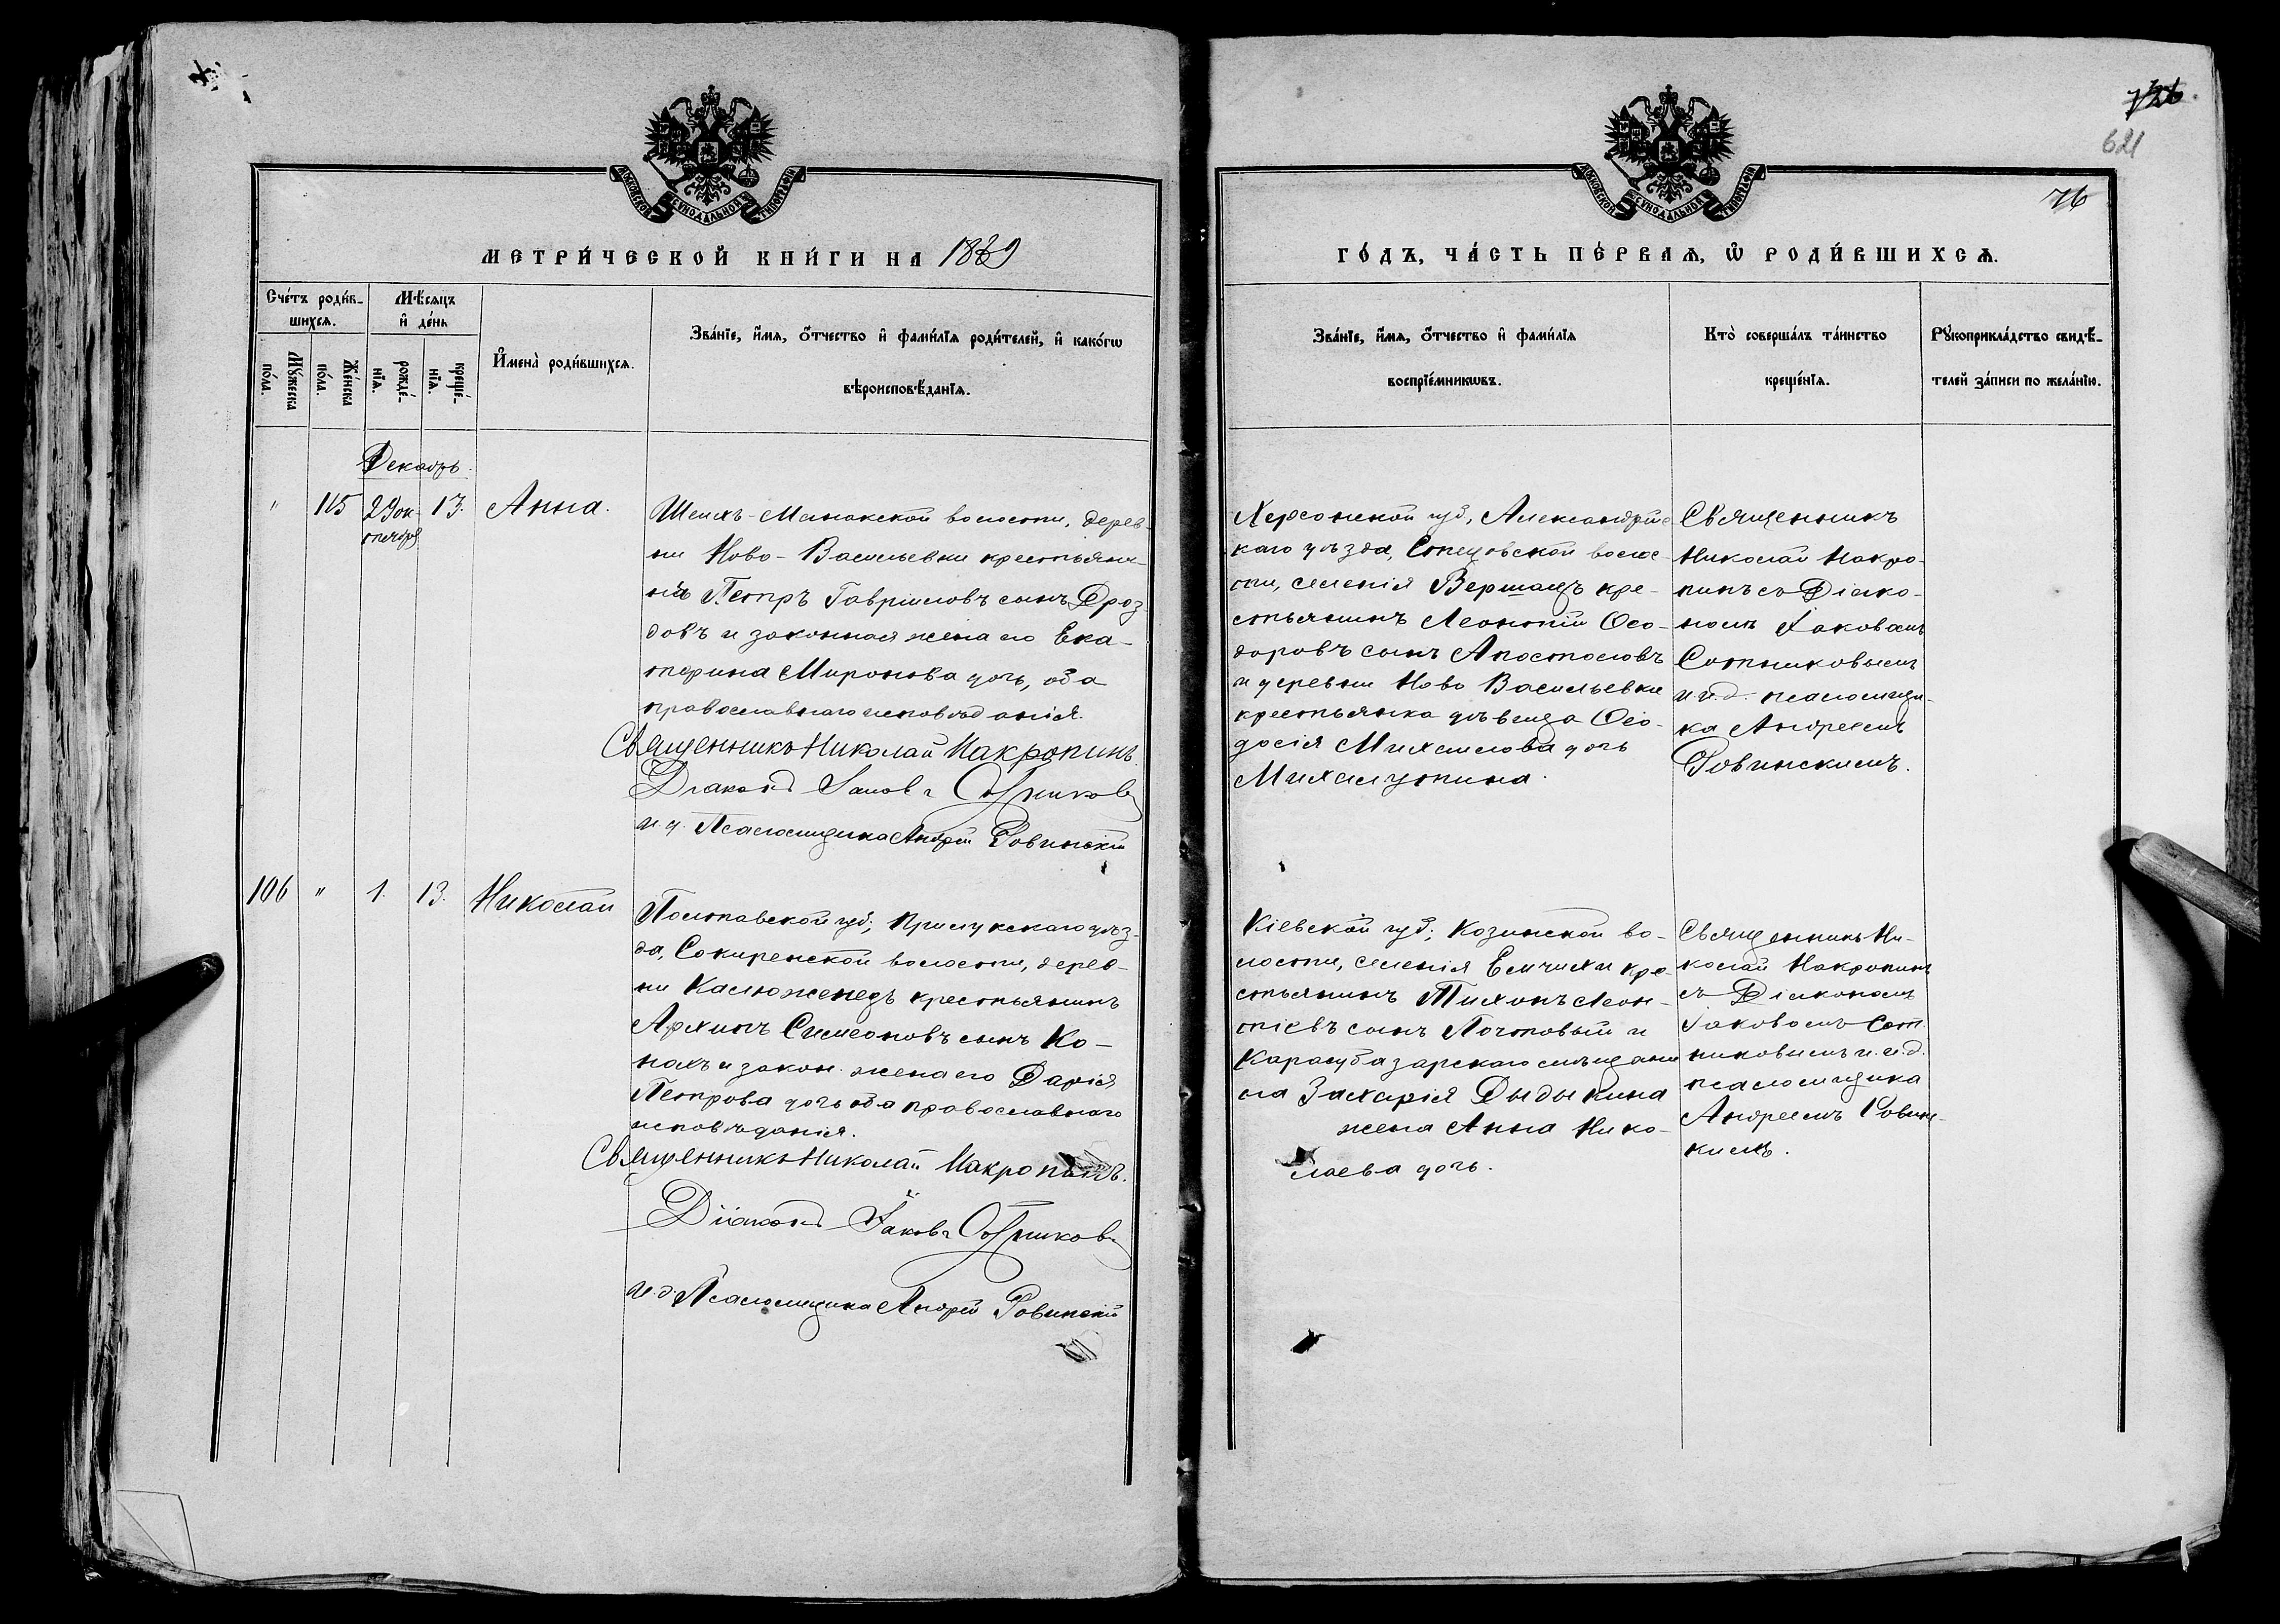 126
621
76
МОСКОВСКОЙ СѴНОДАЛЬНОЙ ТИПОГРАФІИ
МЕТРИ́ЧЕСКОЙ КНИ́ГИ НА 1889
Сче́тъ роди́в-
шихсѧ.
Мꙋ́жеска
по́ла.
Же́нска
по́ла.
Мѣ́сѧцъ
и҆ де́нь
рожде́-
нїѧ.
креще́-
нїѧ.
И҆мена̀ роди́вшихсѧ.
Зва́нїе, и҆́мѧ, ѻ҆́тчество и҆ фами́лїѧ роди́телей, и҆ како́гѡ
вѣроисповѣ́данїѧ.
Декабрь.
" 115 29 ок-
тября 13. Анна.
Шеихъ-Монакской волости, дерев-
ни Ново-Васильевки крестьяни-
нъ Петръ Гавріиловъ сынъ Дроз
довъ и законная жена его Ека-
терина Миронова дочь, оба
православнаго исповѣданія.
Священникъ Николай Макропинъ.
Діаконъ Іаковъ Сотниковъ
и. д. Псаломщика Андрей Ровинскій
106 " 1. 13. Николай
Полтавской губ; Прилукскаго уѣз-
да, Сокиренской волости, дерев-
ни Калюженецъ крестьянинъ
Архипъ Симеоновъ сынъ Ко-
нахъ и закон. жена его Дарія
Петрова дочь оба православнаго
исповѣданія.
Священникъ Николай Макропинъ.
Діаконъ Іаковъ Сотниковъ
и. д. Псаломщика Андрей Ровинскій
МОСКОВСКОЙ СѴНОДАЛЬНОЙ ТИПОГРАФІИ
ГО́ДЪ, ЧА́СТЬ ПЕ́РВАѦ, Ѽ РОДИ́ВШИХСѦ.
Зва́нїе, и҆́мѧ, ѻ҆́тчество и҆ фами́лїѧ
воспрїе́мникѡвъ.
Кто̀ соверша́лъ та́инство
креще́нїѧ.
Рꙋкоприкла́дство свидѣ́-
телей за́писи по жела́нїю.
Херсонской губ, Александрій
скаго уѣзда, волос-
ти, селенія Вершацъ кре-
стьянинъ Леонтій Ѳео-
доровъ сынъ Апостоловъ
и деревни Ново Васильевки
крестьянка дѣвица Ѳео-
досія Михаилова дочь
Михайлутина.
Священникъ
Николай Макро-
пинъ съ Діако-
номъ Іаковомъ
Сотниковымъ
и и. д. псаломщи-
ка Андреемъ
Ровинскимъ.
Кіевской губ; Козинской во-
лости, селенія Емчихи кре-
стьянинъ Тихонъ Леон-
тіевъ сынъ Почтовый и
Карасубазарскаго мѣщани
на Захарія Дыдыкина
жена Анна Нико-
лаева дочь.
Священникъ Ни-
колай Макропинъ
съ Діакономъ
Іаковомъ Сот
никовымъ и. и. д.
псаломщика
Андреемъ Ровин-
кимъ.